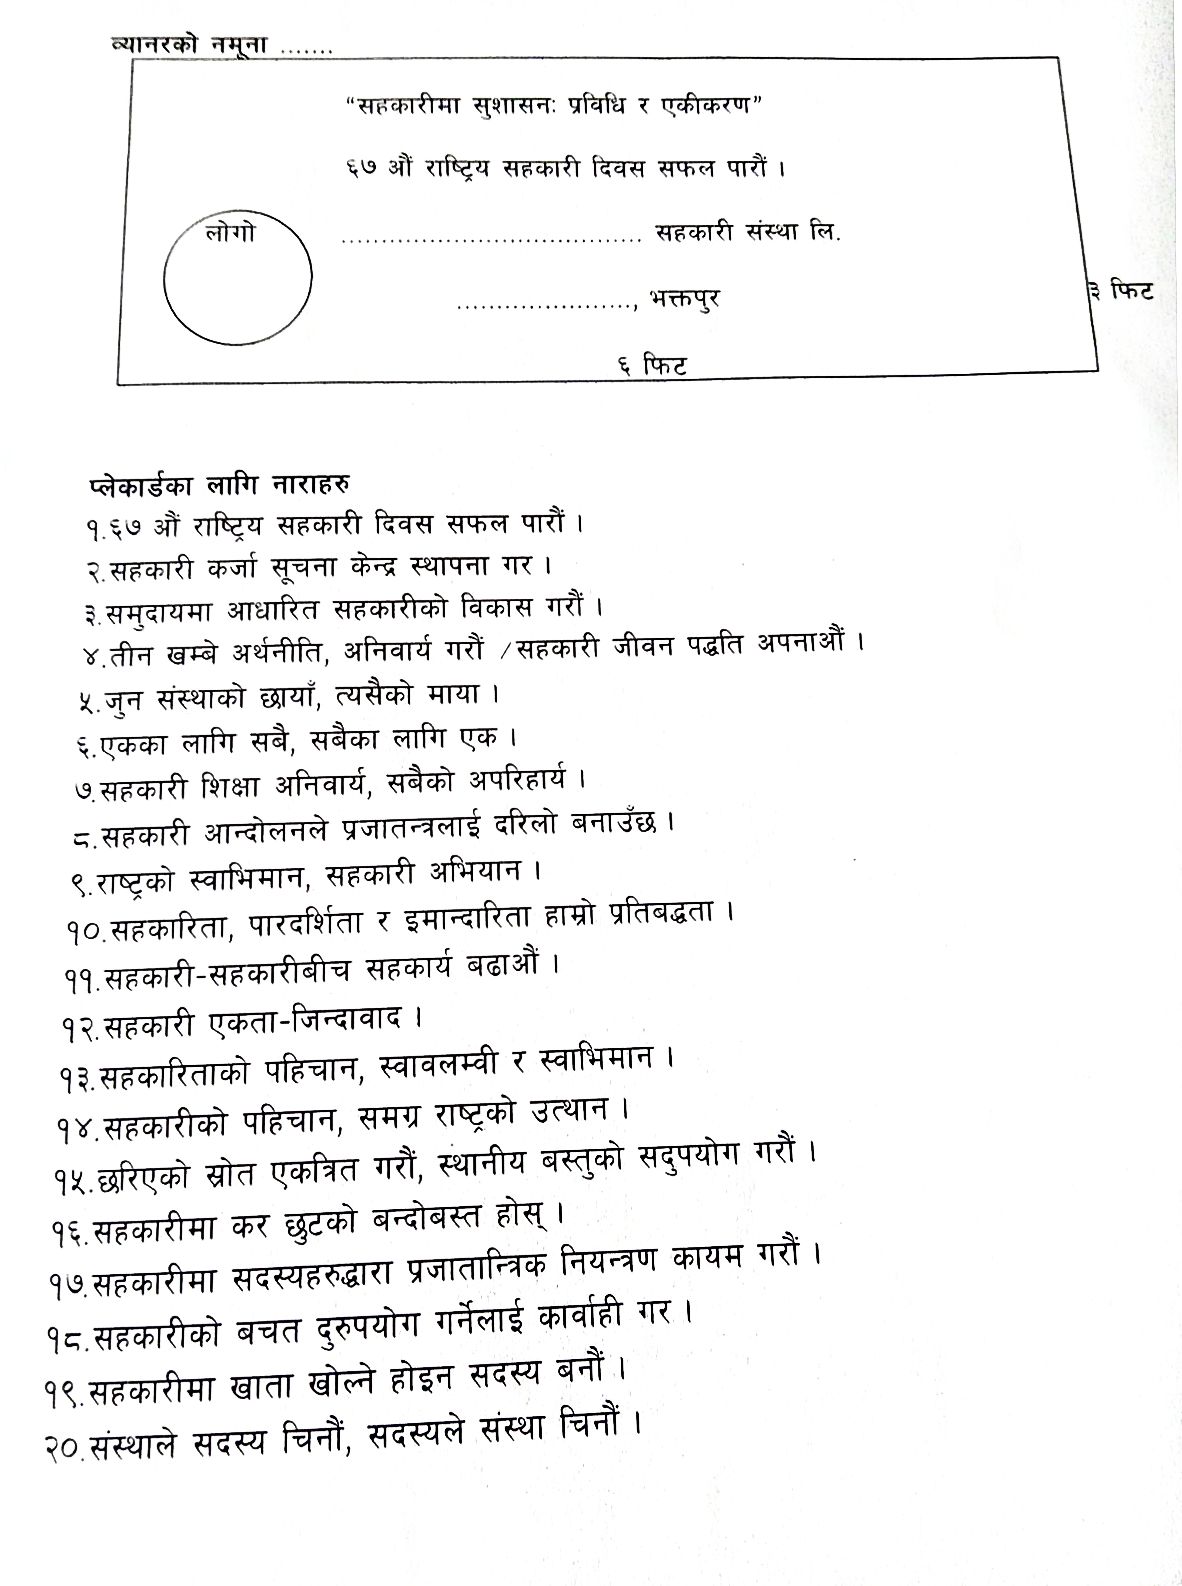 व्यानरको नमूना .......
“सहकारीमा सुशासनः प्रविधि र एकीकरण”
६७ औं राष्ट्रिय सहकारी दिवस सफल पारौं ।
लोगो
...................................... सहकारी संस्था लि.
......................, भक्तपुर
३ फिट
६ फिट
प्लेकार्डका लागि नाराहरु
१.६७ औं राष्ट्रिय सहकारी दिवस सफल पारौं ।
२.सहकारी कर्जा सूचना केन्द्र स्थापना गर ।
३.समुदायमा आधारित सहकारीको विकास गरौं ।
४.तीन खम्बे अर्थनीति, अनिवार्य गरौं /सहकारी जीवन पद्धति अपनाऔं ।
५.जुन संस्थाको छायाँ, त्यसैको माया ।
६.एकका लागि सबै, सबैका लागि एक ।
७.सहकारी शिक्षा अनिवार्य, सबैको अपरिहार्य ।
८.सहकारी आन्दोलनले प्रजातन्त्रलाई दरिलो बनाउँछ ।
९.राष्ट्रको स्वाभिमान, सहकारी अभियान ।
१०.सहकारिता, पारदर्शिता र इमान्दारिता हाम्रो प्रतिबद्धता ।
११.सहकारी-सहकारीबीच सहकार्य बढाऔं ।
१२.सहकारी एकता-जिन्दावाद ।
१३.सहकारिताको पहिचान, स्वावलम्वी र स्वाभिमान ।
१४.सहकारीको पहिचान, समग्र राष्ट्रको उत्थान ।
१५.छरिएको स्रोत एकत्रित गरौं, स्थानीय बस्तुको सदुपयोग गरौं ।
१६.सहकारीमा कर छुटको बन्दोबस्त होस् ।
१७.सहकारीमा सदस्यहरुद्धारा प्रजातान्त्रिक नियन्त्रण कायम गरौं ।
१८.सहकारीको बचत दुरुपयोग गर्नेलाई कार्वाही गर ।
१९.सहकारीमा खाता खोल्ने होइन सदस्य बनौं ।
२०.संस्थाले सदस्य चिनौं, सदस्यले संस्था चिनौं ।